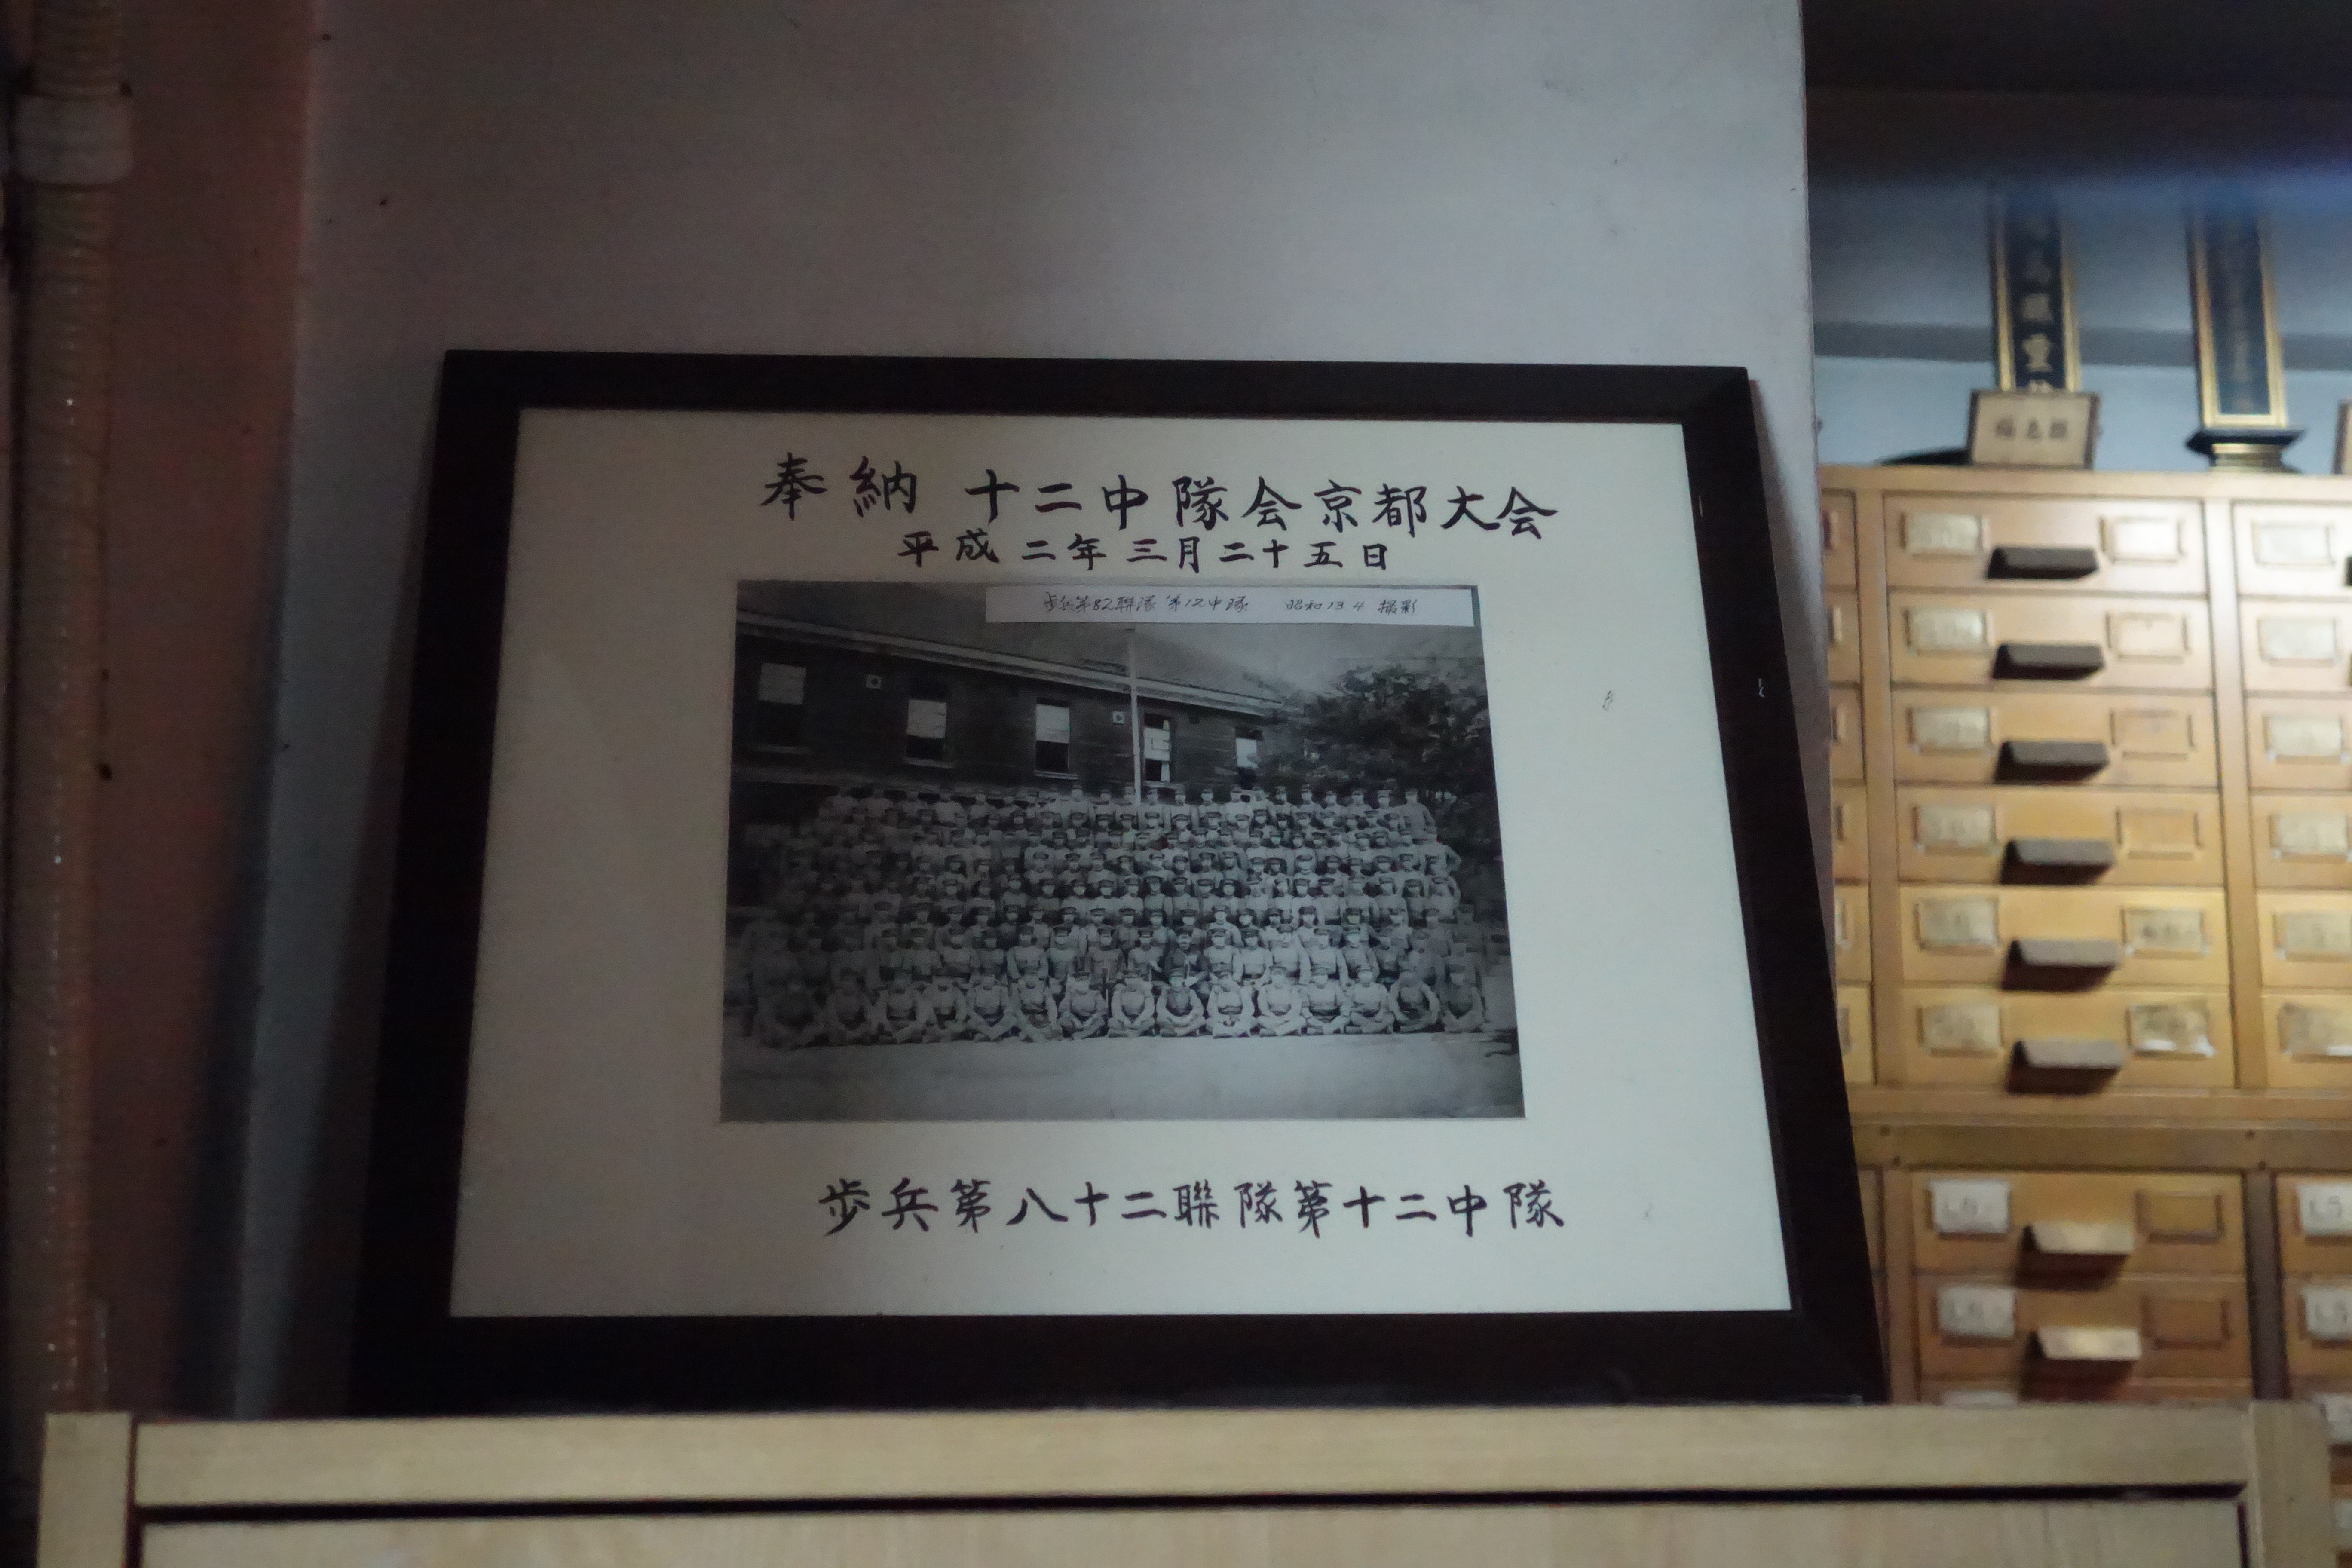 奉納 十二中隊会京都大会
平成二年三月二十五日
歩兵第82聯隊 第12中隊 昭和13.4 撮影
歩兵第八十二聯隊第十二中隊
福島県
L6
L5
L6